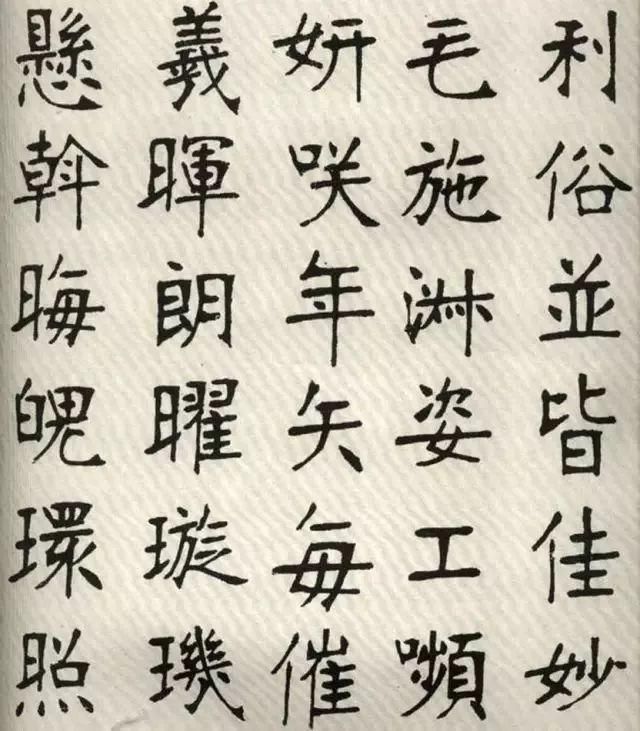 利俗並皆佳妙
毛施淑姿工嚬
妍咲年矢每催
羲暉朗曜璇璣
懸斡晦魄環照